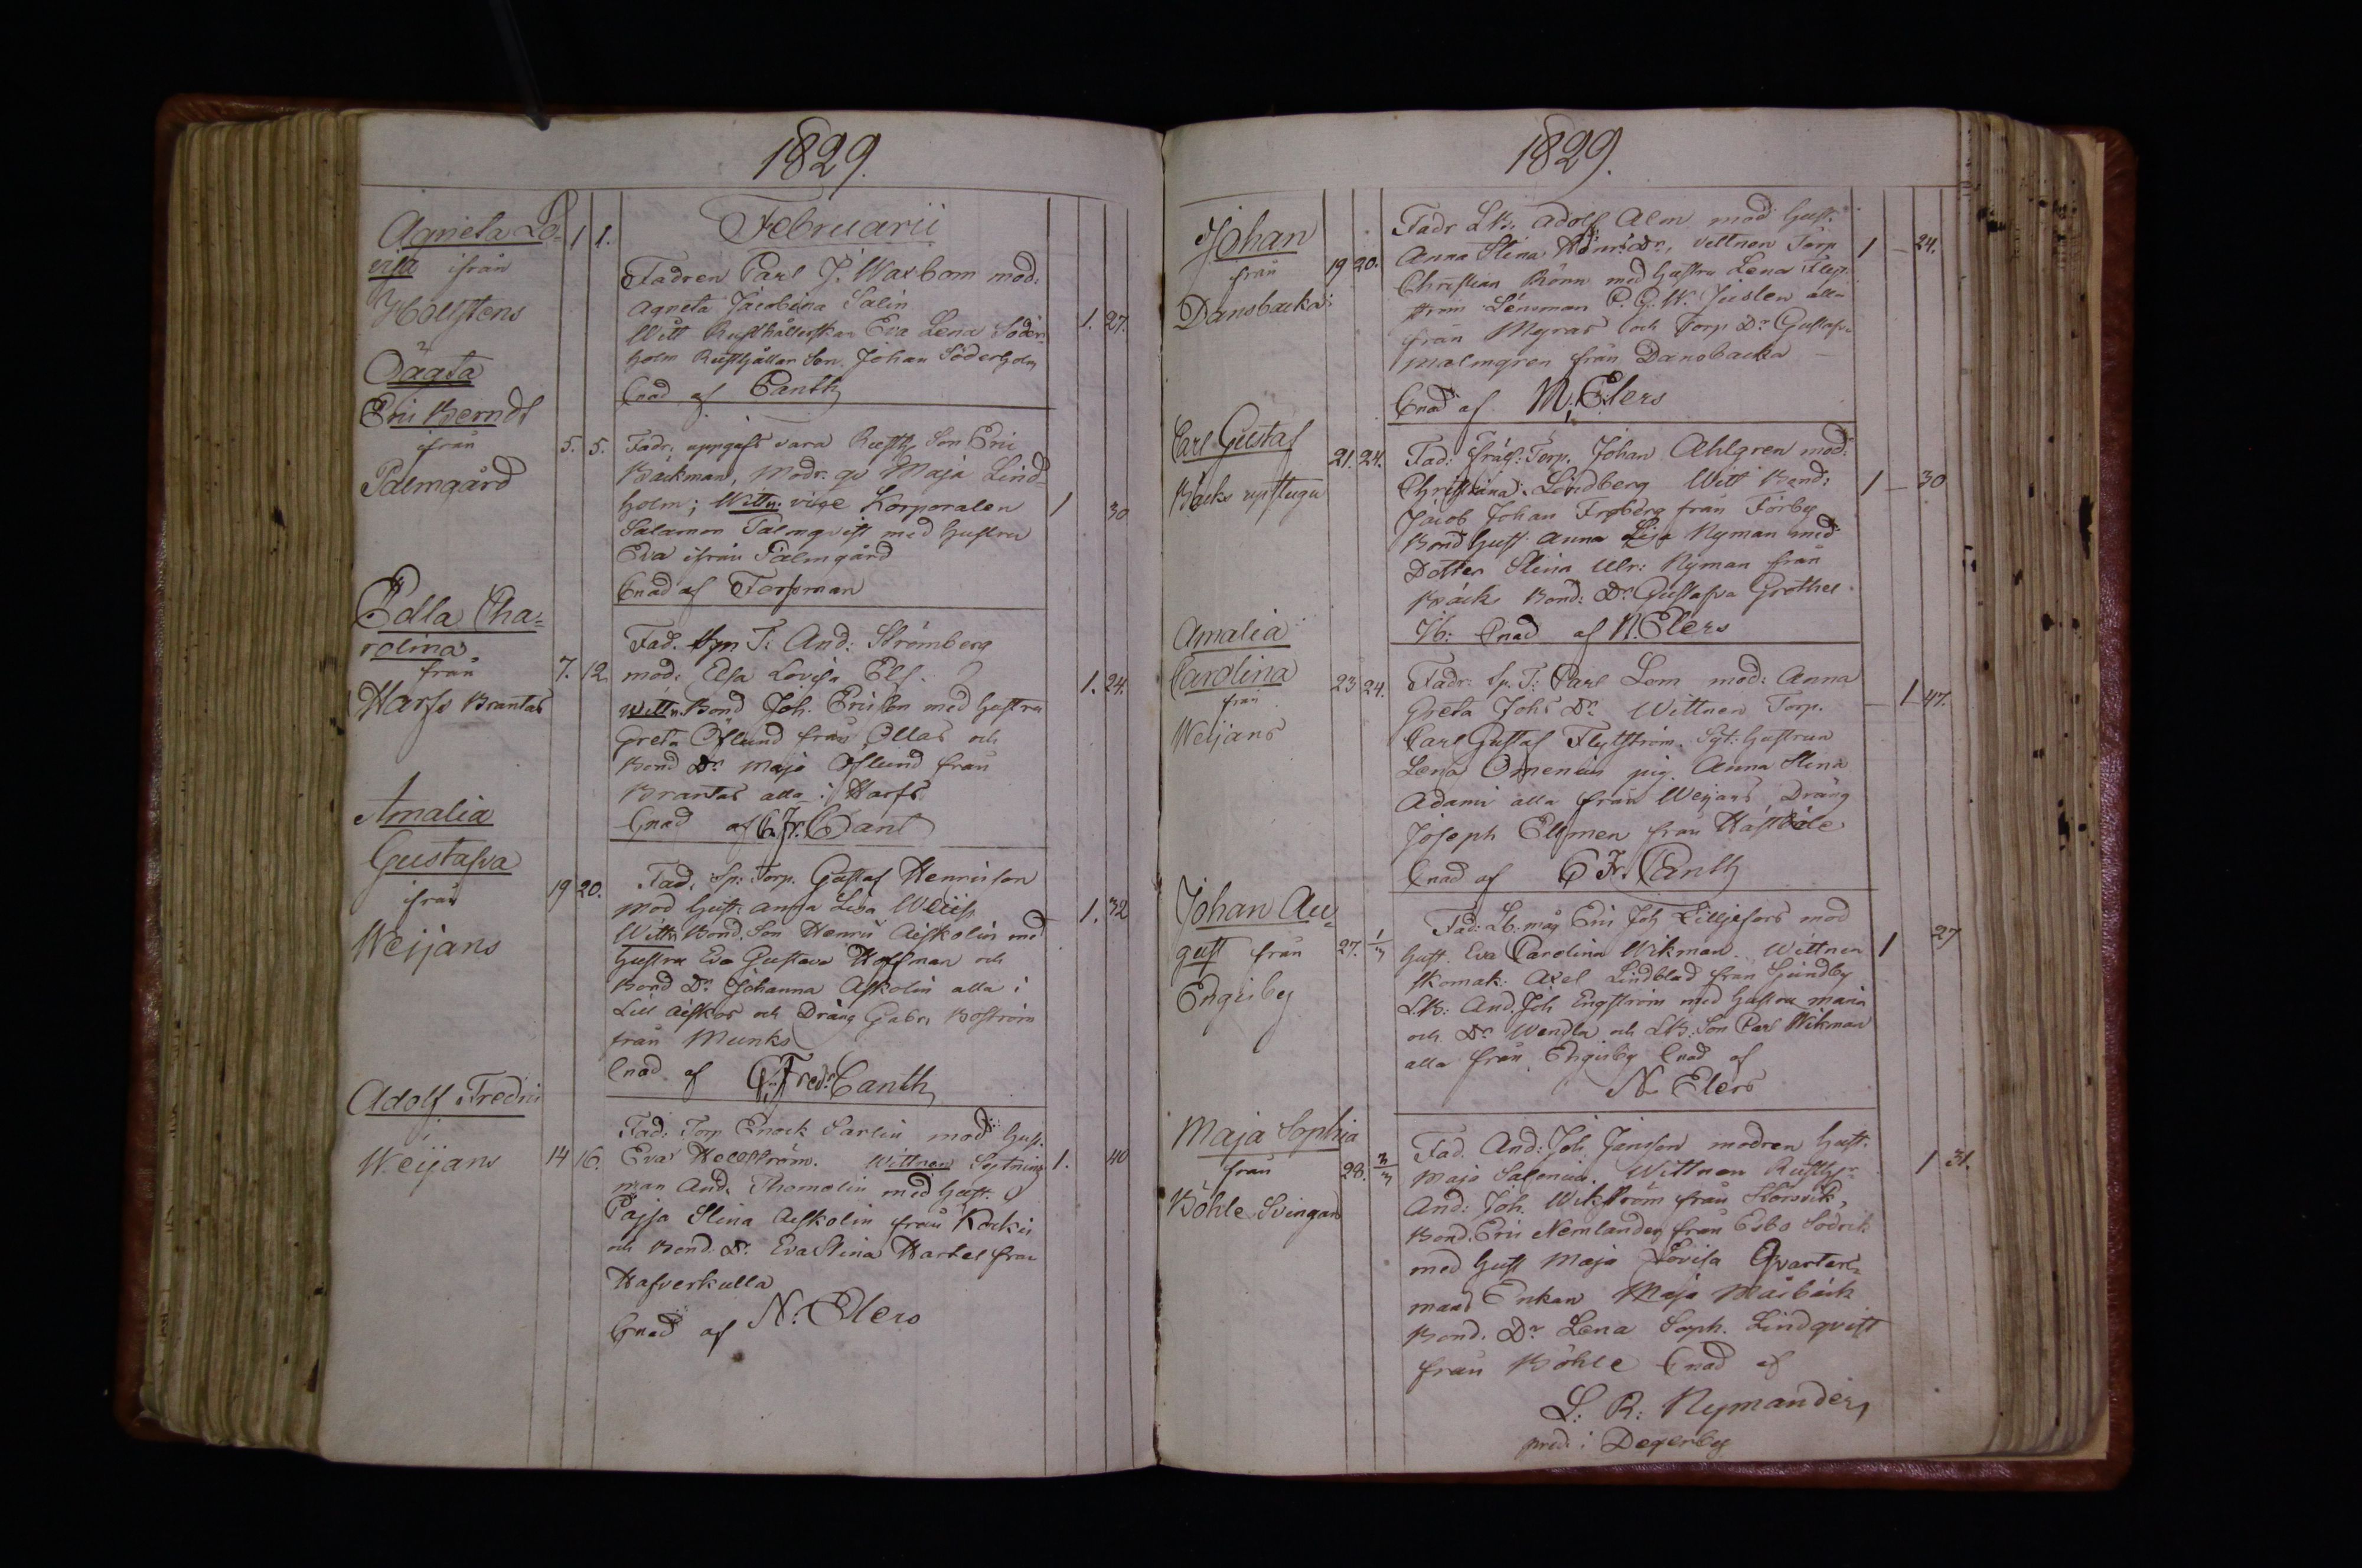 1829.
Februarii
Agneta Lo=
visa ifrån
Hollstens
1 1.
Fadren Carl J. Waxbom mod:
Agneta Jacobina Salin
Witt Rusthållerskan Eva Lena Söder-
holm Rusthållar Son Johan Söderholm
Cnad af Canth
1. 27.
Oägta
Eric Berndt
ifrån
Palmgård
5. 5.
Fadr. uppgafs vara Rusth. Son Eric
Bäckman, Modr. Maja Lind=
holm; Wittn: vice Korporalen
Salamon Palmqvist med hustru
Eva ifrån Palmgård
Cnad af Forsman
1 30
Edla Cha=
rolina
från
Harfs Brantas
7. 12.
Fad. T: And: Strömberg
mod: Elsa Lovisa Elf.
Wittn. Bond Joh. Ericson med hustru
Greta Öflund från Ollas och
Bond Dr Maja Öflund från
Brantas alla i Harfs
Cnad af C. Fr. Cant
1. 24.
Amalia
Gustafva
ifrån
Weijans
19 20.
Fad. Sp: Torp. Gustaf Henricson
Mod Hust: Anna Lisa
Wittn Bond. Son Henric Aiskolin med
hustru Eva Gustava Hoffman och
Bond Dr Johanna Askolin alla i
Lill Aiskos och Dräng Gabr. Boström
från Munks
Cnad af C. Fredr Canth
1. 32
Adolf Fredric
i
Weijans
14 16.
Fad: Torp Enock Sarlin mod Hust.
Eva Wittnen Sextning
man And. Thomolin med hust.
Cajsa Stina Aiskolin från Kockis
och Bond. Dr Eva Stina Hartel från
Hafverkulla
Cnad af N. Elers
1. 40
1829.
Johan
från
Dansbacka
19 20.
Fadr LB. Adolf Alm mod hust.
Anna Stina Henr: Dr, vittnen Torp
Christian Rönn med hustru Lena Flyt
ström Länsman C. G. W. Juslen alla
från Myras och Torp Dr Gustafva
Malmgren från Dansbacka
Cnad af M. Elers
1 — 24.
Carl Gustaf
Bäcks
21. 24.
Fad: Torp. Johan Ahlgren mod:
Christina Lindberg Witt Bond:
Jacob Johan Froberg från Förby
Bond hust. Anna Lisa Nyman med
Dotter Stina Ulr: Nyman från
Bäcks Bond: Dr Gustafva Grothel
Cnad af N. Elers
1 — 30
Amalia
Carolina
från
Weijans
23 24.
Fadr: Sp. T: Carl Lom mod: Anna
Greta Johs Dr Wittnen Torp.
Carl Gustaf Flytström. hustrun
Lena Omenius pig. Anna Stina
Adami alla från Weijans, Dräng
Joseph Ellmen från Hastböle
Cnad af C Fr. Canth
— 1 47.
Johan Au-
gust från
Engisby
27. 1/3
Fad: Lb. måg Eric Joh Lilljefors mod
Hust. Eva Carolina Wikman. Wittnen
Skomak: Axel Lindblad från Sundby
LB: And. Joh Engström med hustru Maria
och Dr Wendla och LB: Son Carl Wikman
alla från Engisby Cnad af
N. Elers
1 27
Maja Sophia
från
Böhle Svingan
28. 3/3
Fad. And: Joh. Jansson modren hust.
Maja Salenius. Wittnen Rusth.
And: Joh. Wikström från Korsvik,
Bond. Eric Nemlander från Esbo Sodrik
med hust Maja Lovisa Qvartar=
mans Enkan Maja Måsbäck
Bond. Dr Lena Soph. Lindqvist
från Böhle Cnad af
L: R: Nymander
pred. i Degerby
1 31.